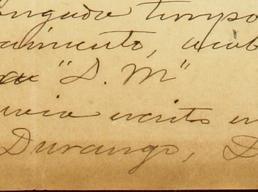 ongada tiempo
amiento, acab
"S. M"
escrito en
Durango, D